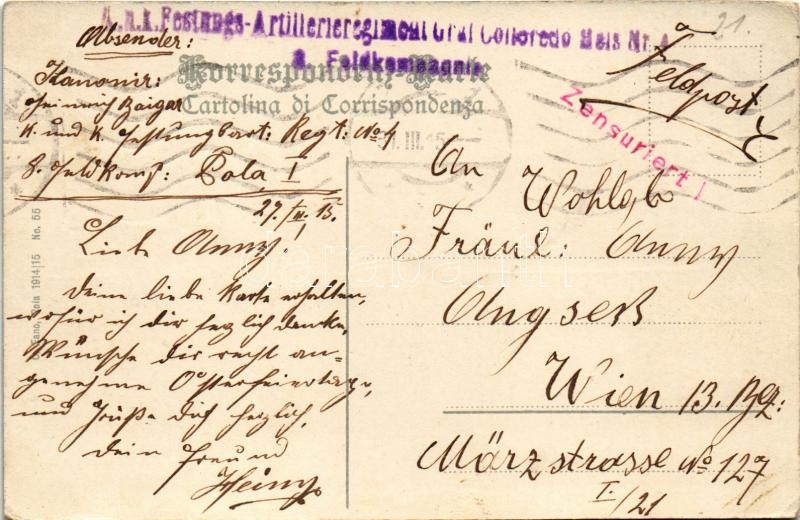 K.u.k. Festungs-Artillerieregiment Graf Colloredo Mels Nr. 4
8. Feldkompagnie
Korrespondenz-Karte
Cartolina di Corrispondenza
21.
Feldpost
Zensuriert!
Absender:
Kanonir:
Heinrich Zaiger
K. und K. Festungsart: Regt: No 4
8. Feldkomp: Pola I
29./III. 15.
Liebe Anny.
Deine liebe Karte erhalten,
wofür ich dir herzlich danke,
Wünsche dir recht an-
genehme Osterfeiertage,
und Grüße dich herzlich,
dein Freund
Heiny
An
Wohlgb
Fräul: Anny
Angserb
Wien 13. Bez:
Märzstrasse No 127
I./21
Fano, Pola 1914|15 No. 55
III. 15
darabanth